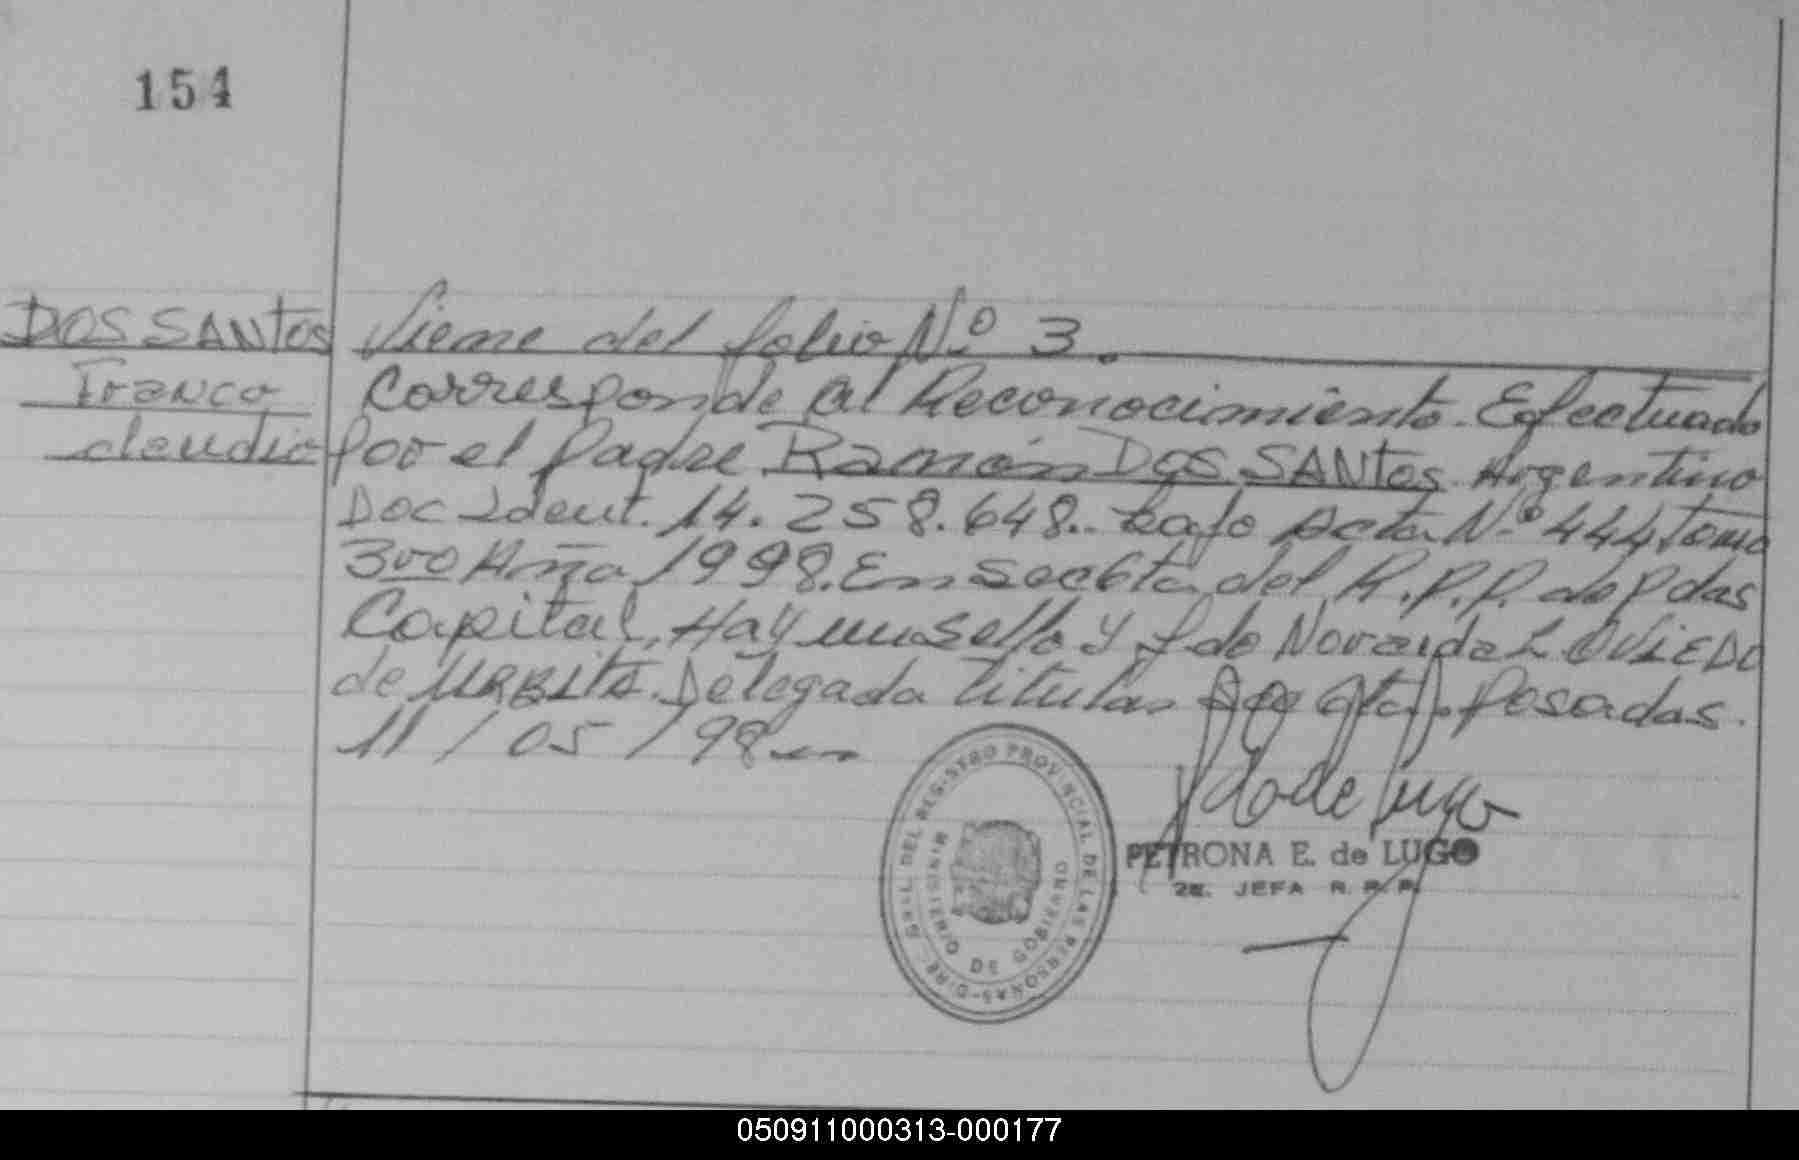 154
DOS SANTOS
Franco
claudio
Viene del folio Nº 3.
Corresponde al Reconocimiento. Efectuado
por el padre Ramón DOS SANTOS. Argentino
Doc Ident. 14.258.648.. bajo Acta Nº 444 tomo
3ro Año 1998. En Seccta del R.P.P. de Pdas
Capital, Hay un Sello y f.do Noraida L. OVIEDO
de URBITA. Delegada titular Posadas.
11/05/98
DIREC. GRAL. DEL REGISTRO PROVINCIAL DE LAS PERSONAS
MINISTERIO DE GOBIERNO
PETRONA E. de LUGO
2a. JEFA R. P. P.
050911000313-000177